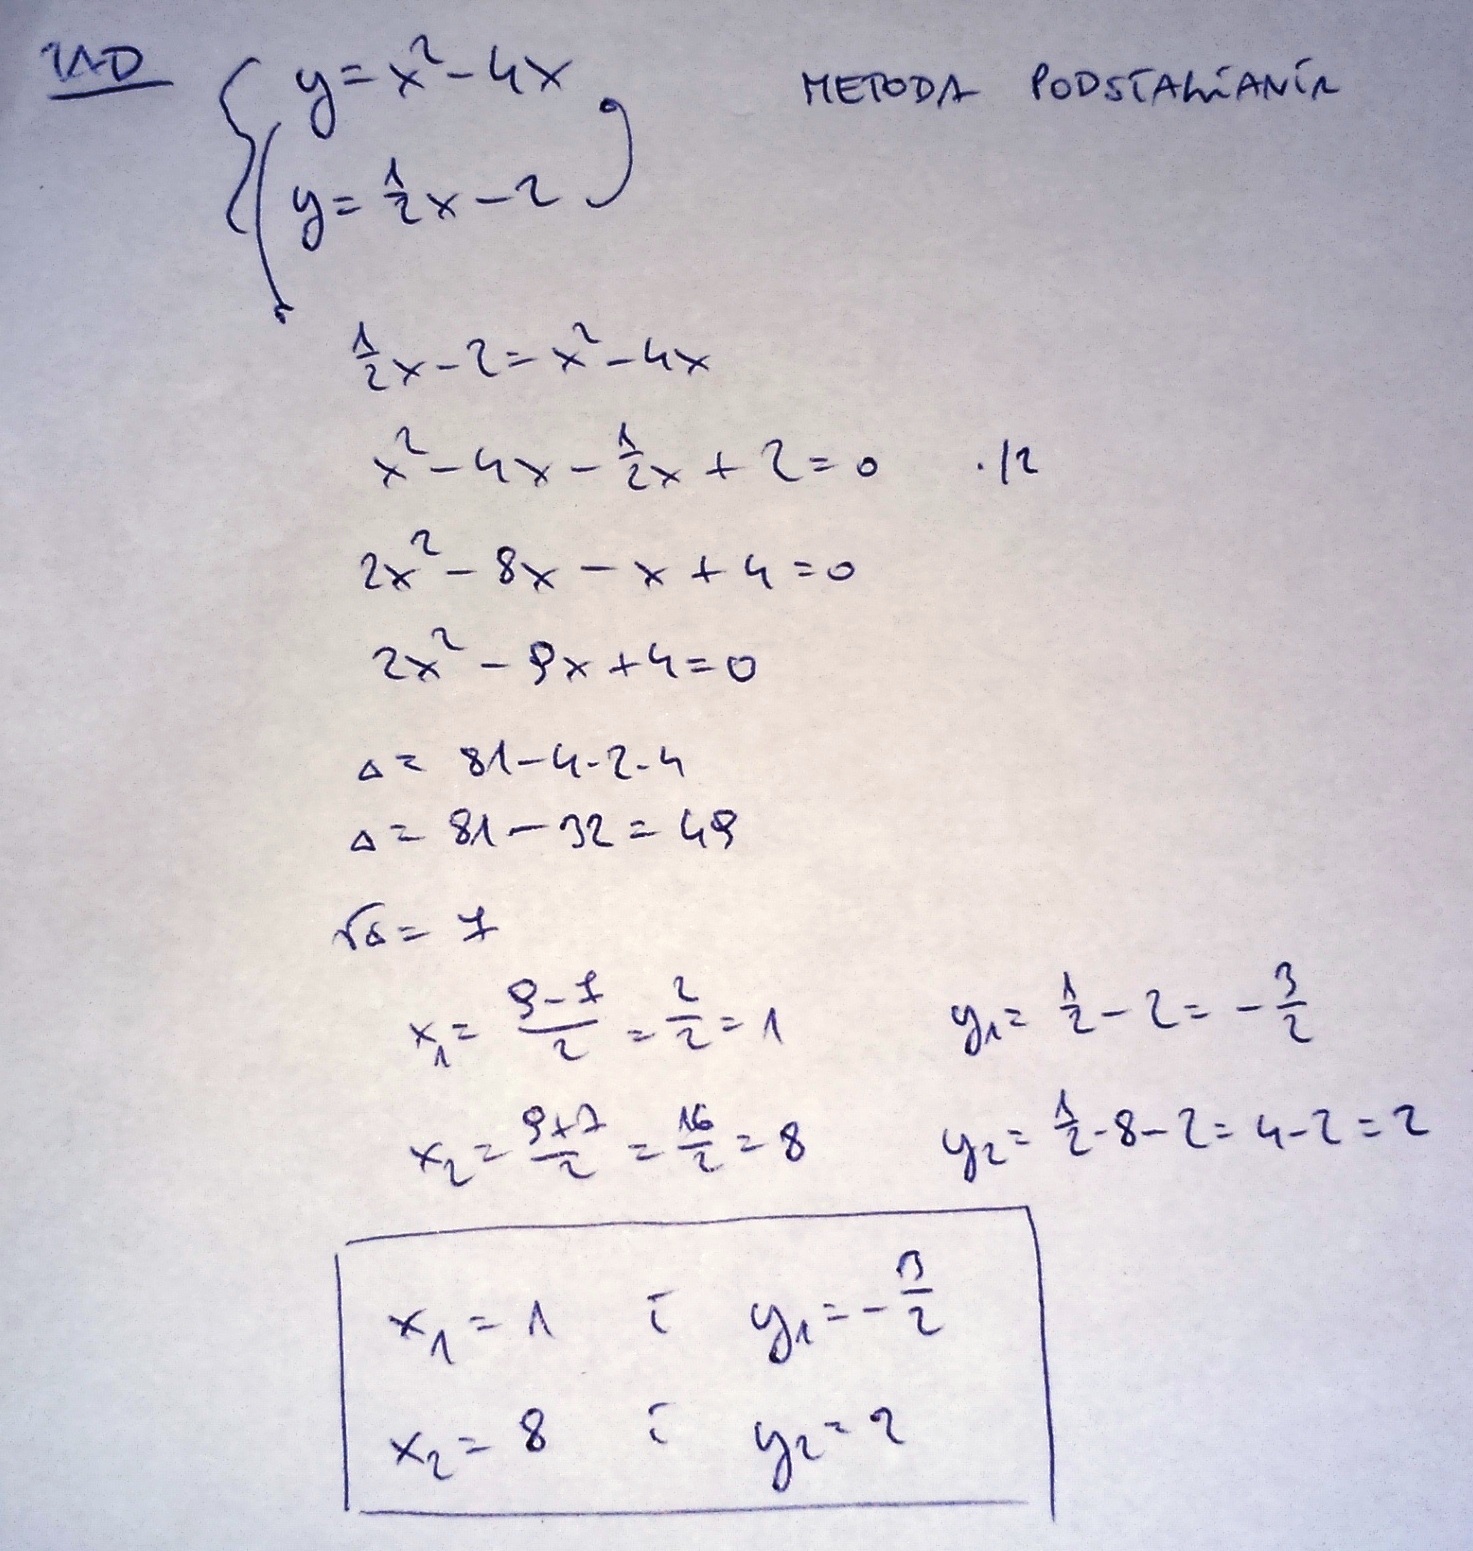 ZAD { y = x² - 4x METODA PODSTAWIANIA
y = 1/2 x - 2
1/2 x - 2 = x² - 4x
x² - 4x - 1/2 x + 2 = 0 ·/2
2x² - 8x - x + 4 = 0
2x² - 9x + 4 = 0
Δ = 81 - 4·2·4
Δ = 81 - 32 = 49
√Δ = 7
x₁ = (9-7)/2 = 2/2 = 1 y₁ = 1/2 - 2 = -3/2
x₂ = (9+7)/2 = 16/2 = 8 y₂ = 1/2·8 - 2 = 4 - 2 = 2
x₁ = 1 i y₁ = -3/2
x₂ = 8 i y₂ = 2